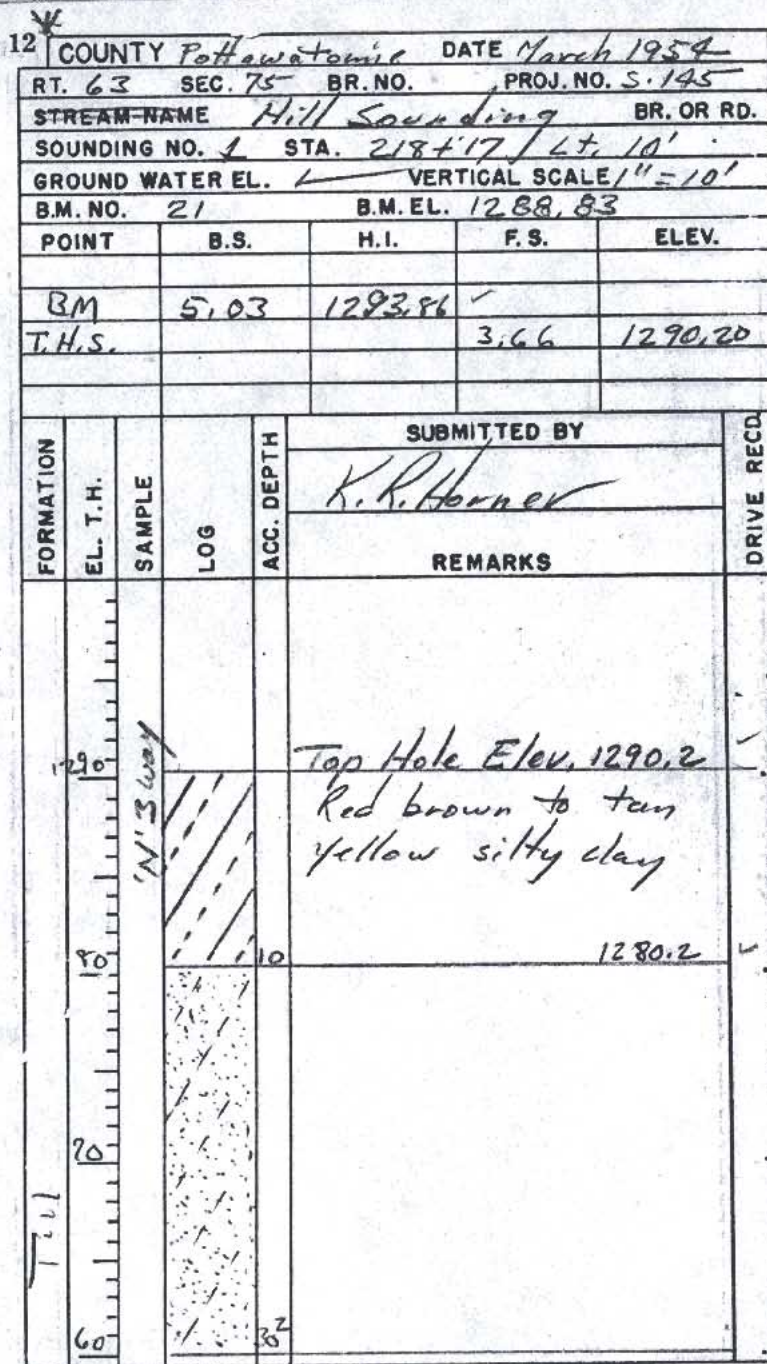 12 COUNTY Pottawatomie DATE March 1954
RT. 63 SEC. 75 BR. NO. PROJ. NO. S-145
STREAM NAME Hill Sounding BR. OR RD.
SOUNDING NO. 1 STA. 218+17 / Lt. 10'
GROUND WATER EL. VERTICAL SCALE 1" = 10'
B.M. NO. 21 B.M. EL. 1288.83
POINT B.S. H.I. F.S. ELEV.
BM 5.03 1293.86 ✓
T.H.S. 3.66 1290.20
FORMATION EL. T.H. SAMPLE LOG ACC. DEPTH SUBMITTED BY DRIVE RECD.
K.R. Horner
REMARKS
'N' 3 way
1290 Top Hole Elev. 1290.2
Red brown to tan
yellow silty clay
80 10 1280.2
70
Till
60 30²